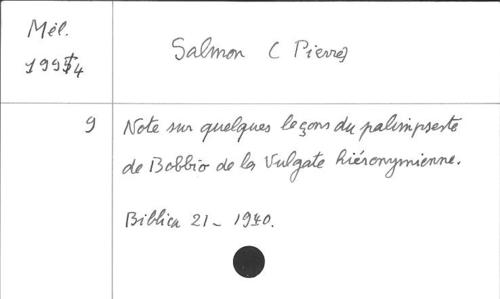 Mél.
19954
Salmon (Pierre)
9
Note sur quelques leçons du palimpseste
de Bobbio de la Vulgate hiéronymienne.
Biblica 21 - 1940.